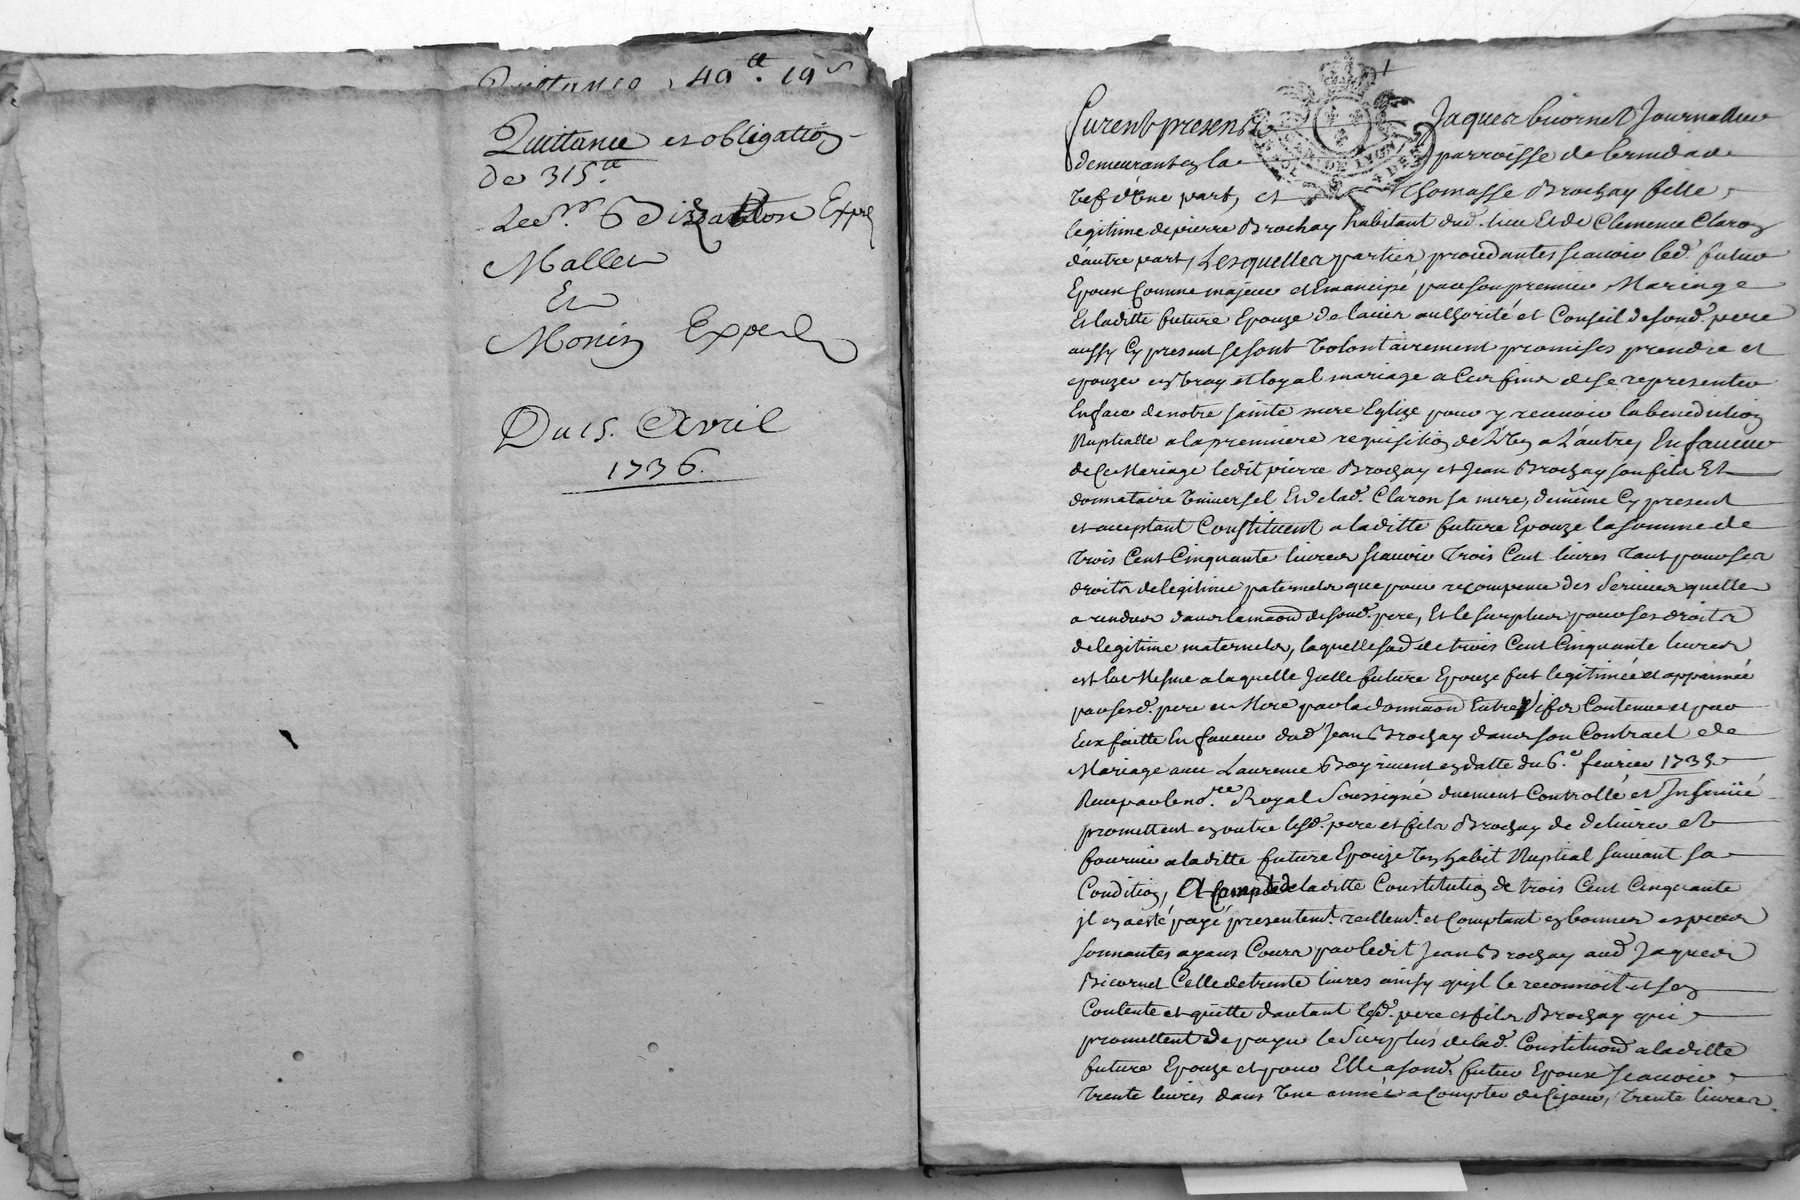 Quittance 49ᵗᵗ. 19ˢ
Quittance et obligation
De 315ᵗᵗ
Expel
Mallet
Et
Monin Expert
Du 15. Avril
1736.
furent presents Jaques bicornet Journalier
demeurant en la parroisse de
d'Une part, et Thomasse Brochay fille
legitime de pierre Brochay habitant dud. lieu Et de Clemence Claron
d'autre part, Lesquelles parties procedantes scauoir led. futur
Epoux Comme majeur et Emancipé par son premier Mariage
Et laditte future Epouze de l'auth authorité et Conseil de sond. pere
aussy Cy present se sont Volontairement promises prendre et
epouzer en Vray et loyal mariage a Ces fins de se representer
En face de notre sainte mere Eglize pour y receuoir la benediction
Nuptialle a la premiere requisition de L'Un a L'autre, En faueur
de Ce Mariage ledit pierre Brochay et Jean Brochay son fils Et
donnataire Vniuersel Et de lad. Claron sa mere, de même Cy present
et acceptant Constituent a laditte future Epouze la somme de
trois Cent Cinquante liures scauoir trois Cent liures tant pour ses
droits de legitime paternels que pour recompense des Seruices quelle
a rendus dans la maon de sond. pere, Et le surplus pour ses droits
de legitime maternels, laquelle sod de trois Cent Cinquante liures
est la Mesme a laquelle Jcelle future Epouze fut legitimée et appannée
par sesd. pere et Mere par la donnaon Entre Vifs Contenue et par
Eux faitte En faueur dud Jean Brochay dans son Contract de
Mariage auec Laurence en datte du 6.ᵉ feurier 1735
Receu par le noʳᵉ. Royal Soussigné duement Controllé et Insinüé
promettent en outre lesd. pere et fils Brochay de deliurer et
fournir a laditte future Epouze Un habit Nuptial suiuant sa
Condition, Et a Compte de laditte Constitution de trois Cent Cinquante
jl en a esté payé presentemᵗ. reellemᵗ. et Comptant en bonnes especes
sonnantes ayans Cours par ledit Jean Brochay aud Jaques
Bicornet Celle de trente liures ainsy qu'jl le reconnoit et s'en
Contente et quitte d'autant lesd. pere et fils Brochay qui
promettent de payer le Surplus de lad. Constituon a laditte
future Epouze et pour Elle a sond. futur Epoux scauoir
trente liures dans Vne année a Compter de Ce jour, trente liures